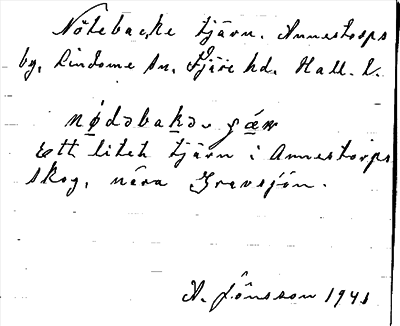 Nötebacke tjärn. Annestorps
by, Lindome sn, Fjäre hd. Hall. l.
nødəbakə
Ett litet tjärn i Annestorps
skog, nära Gravsjön.
A. Jönsson 1941